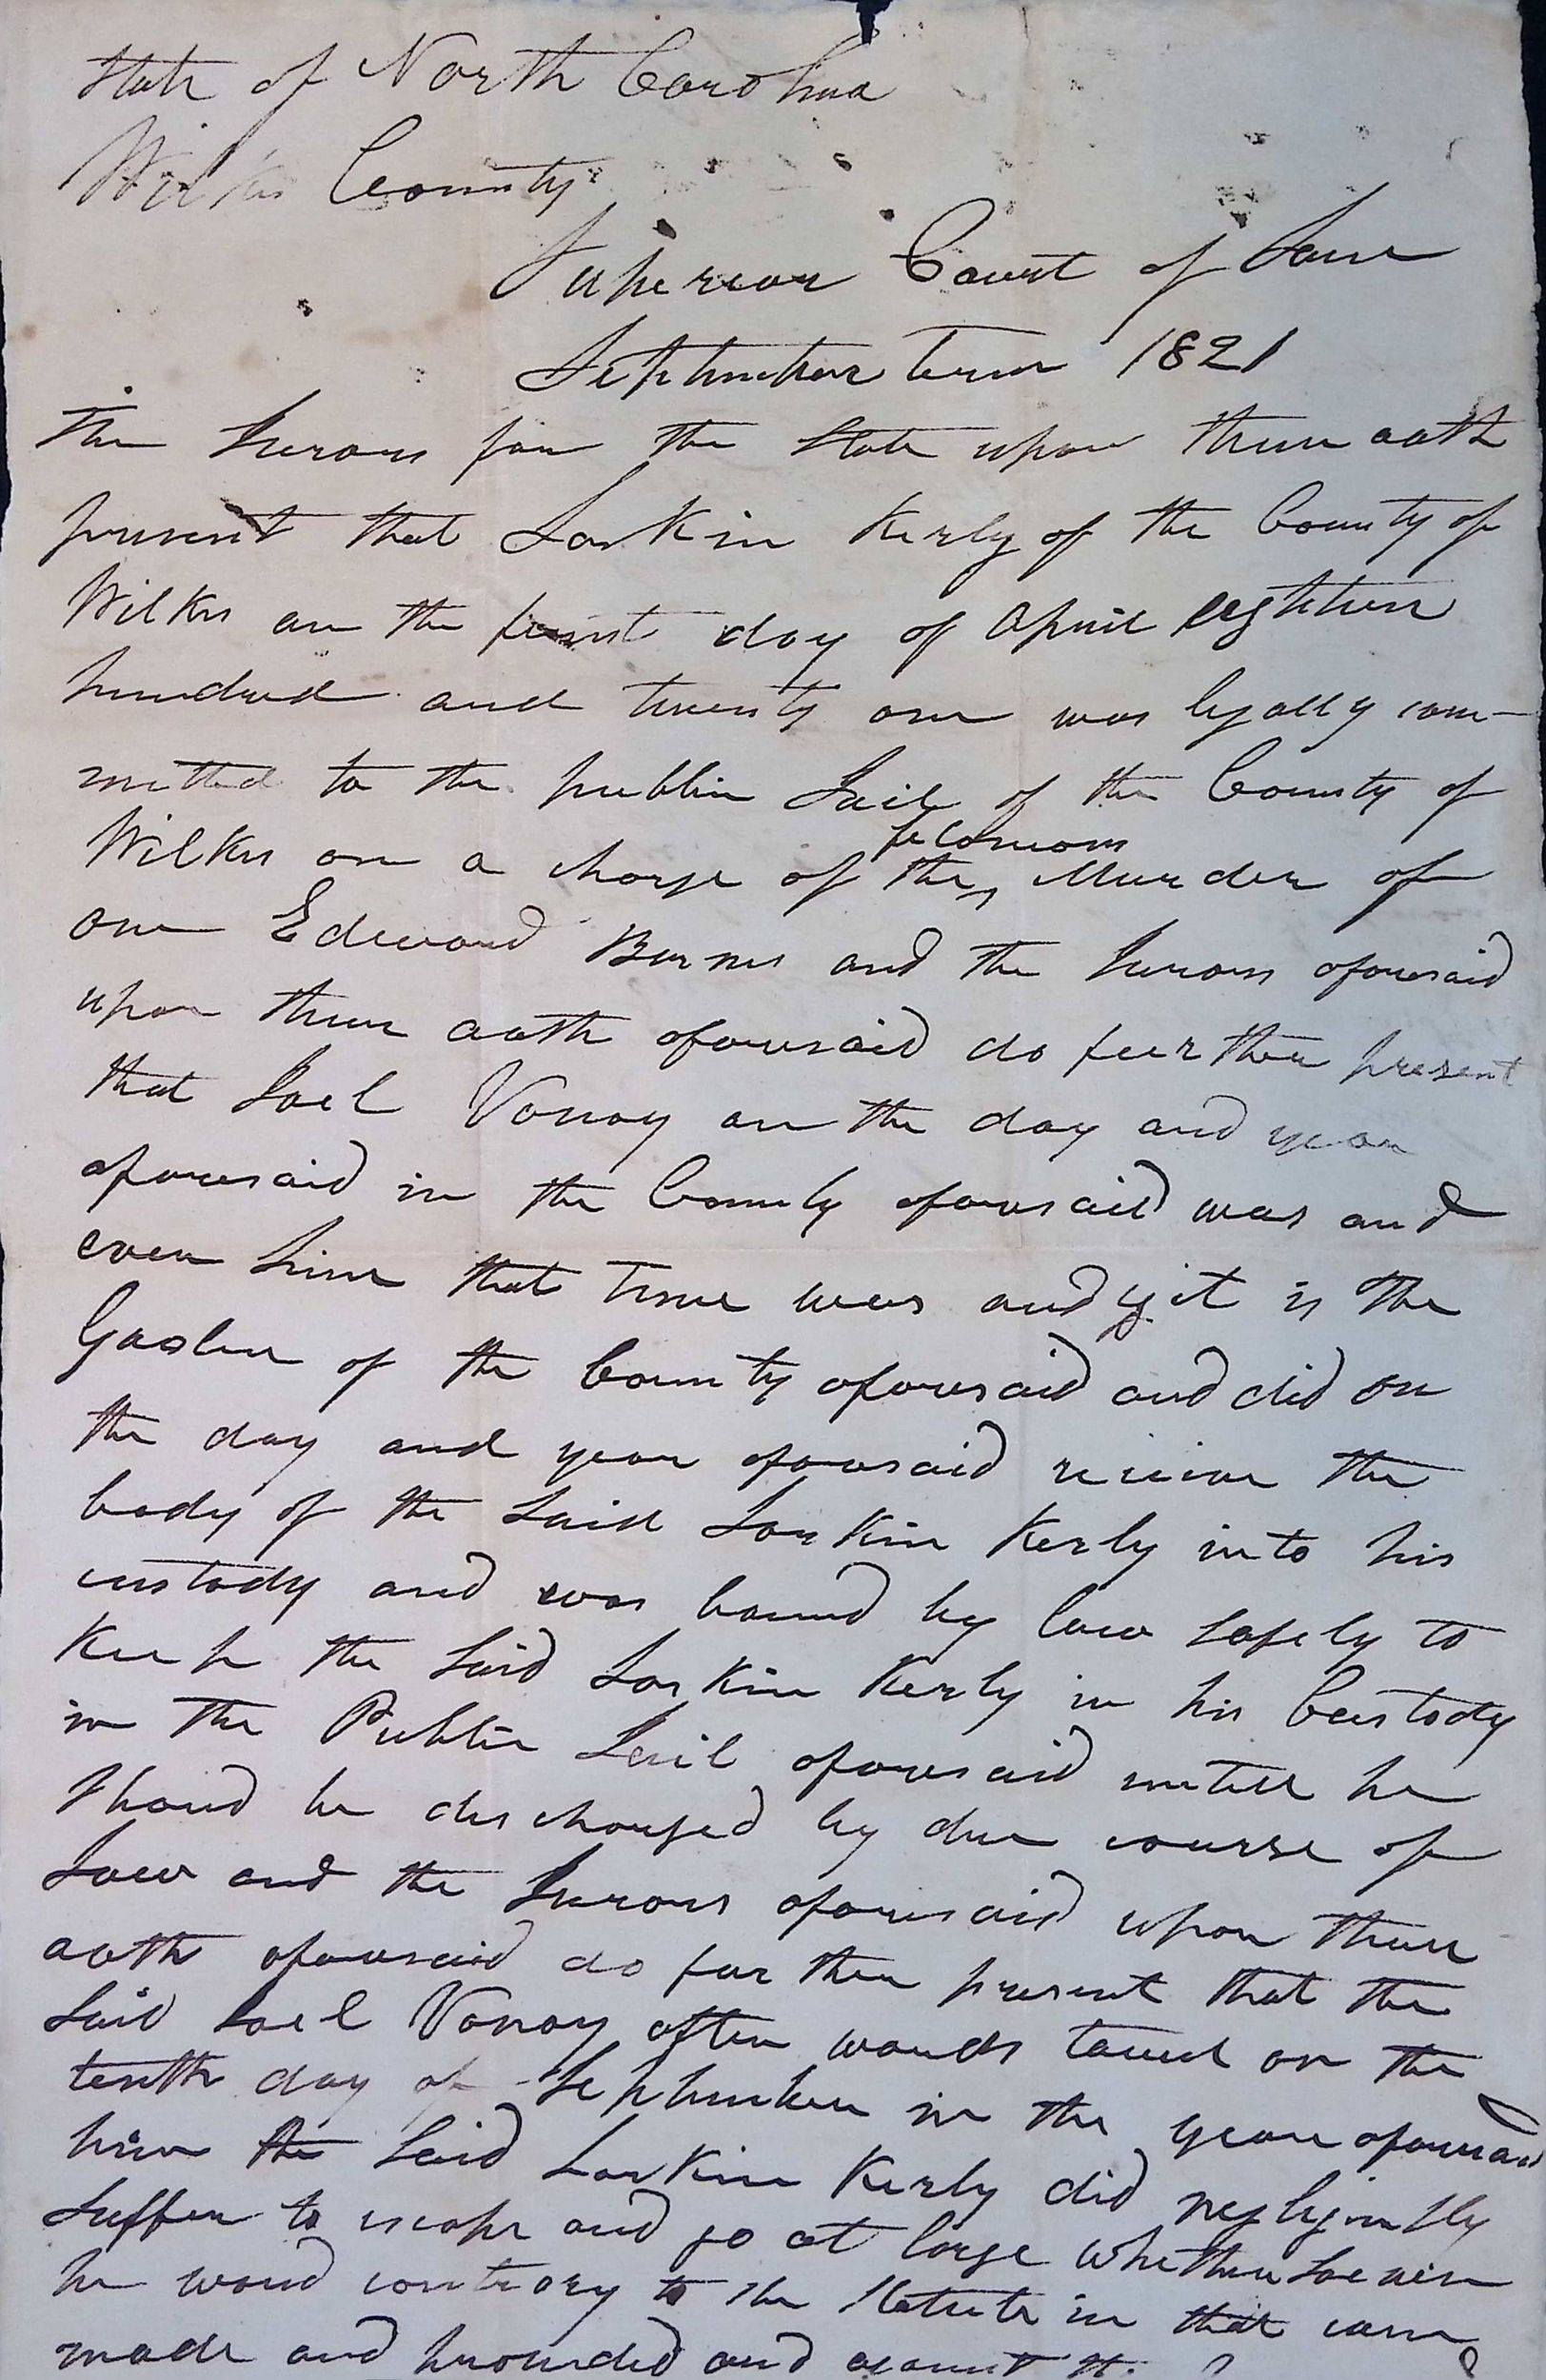 State of North Carolina
Wilkes County
Superior Court of Law
September Term 1821
The Jurors for the State upon their oath
present that Larkin Kerly of the County of
Wilkes on the first day of April eighteen
hundred and twenty one was legally com-
mitted to the public Jail of the County of
felonious
Wilkes on a charge of the ^ Murder of
one Edward Burnes and the Jurors aforesaid
upon their oath aforesaid do further present
that Joel Vanoy on the day and year
aforesaid in the County aforesaid was and
ever since that time was and yet is the
Gaoler of the County aforesaid and did on
the day and year aforesaid receive the
body of the said Larkin Kerly into his
custody and was bound by law safely to
Keep the said Larkin Kerly in his Custody
in the Public Jail aforesaid untill he
Shoud be discharged by due course of
Law and the Jurors aforesaid upon their
oath aforesaid do further present that the
said Joel Vanoy afterwards towit on the
tenth day of September in the year aforesaid
him the said Larkin Kerly did negligintly
suffer to escape and go at large whethersoever
he woud contrary to the Statute in that case
made and provided and against the